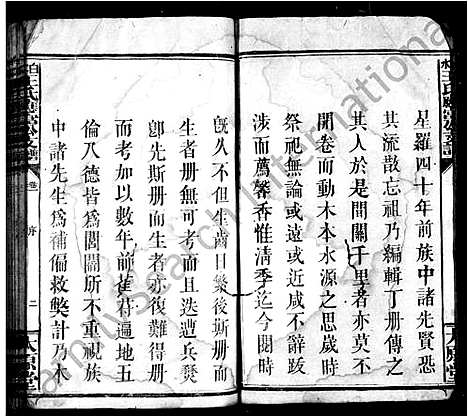 星羅四十年前族中諸先賢恐
其流散忘祖乃編輯丁册傳之
其人於是間關千里者亦莫不
開卷而動木本水源之思歲時
祭祀無論或遠或近咸不辭跋
涉而薦馨香惟清季迄今閱時
旣久不但生齒日繁後斯册而
生者册無可考而且迭遭兵燹
卽先斯册而生者亦復難得册
而考加以數年前萑苻遍地五
倫八德皆爲閣閣所不重視族
中諸先生爲補偏救獘計乃木
王氏
支譜
卷
序
二
太原堂
FamilySearch International